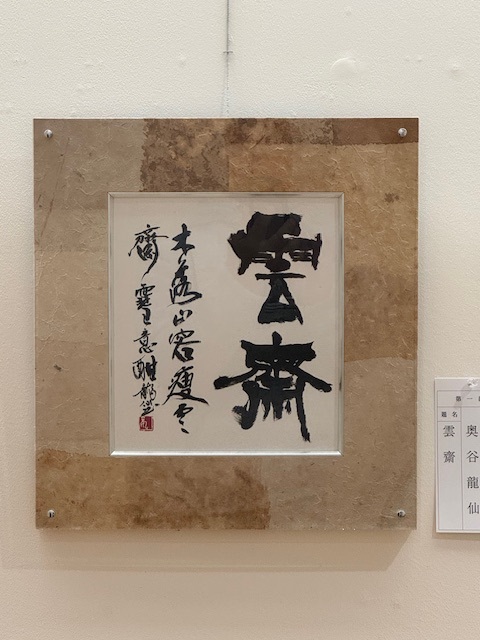 雲齋
木落山容瘦雲
齋意酣龍仙
第一
奥谷龍仙
題名
雲齋